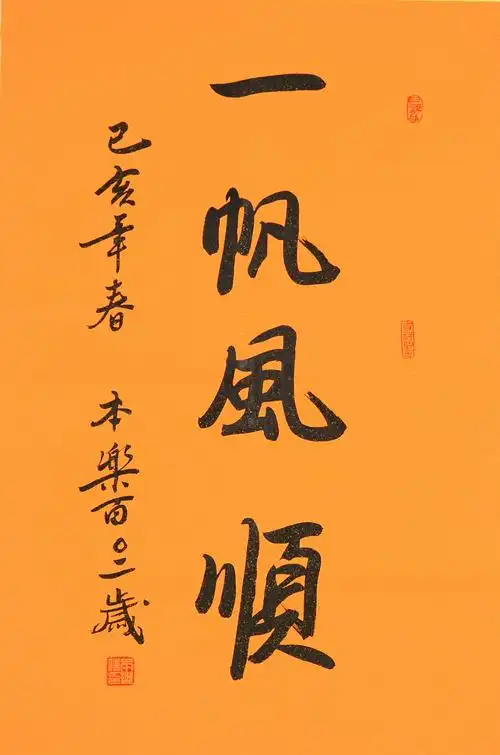 一帆風順
己亥年春 本樂百〇二歲